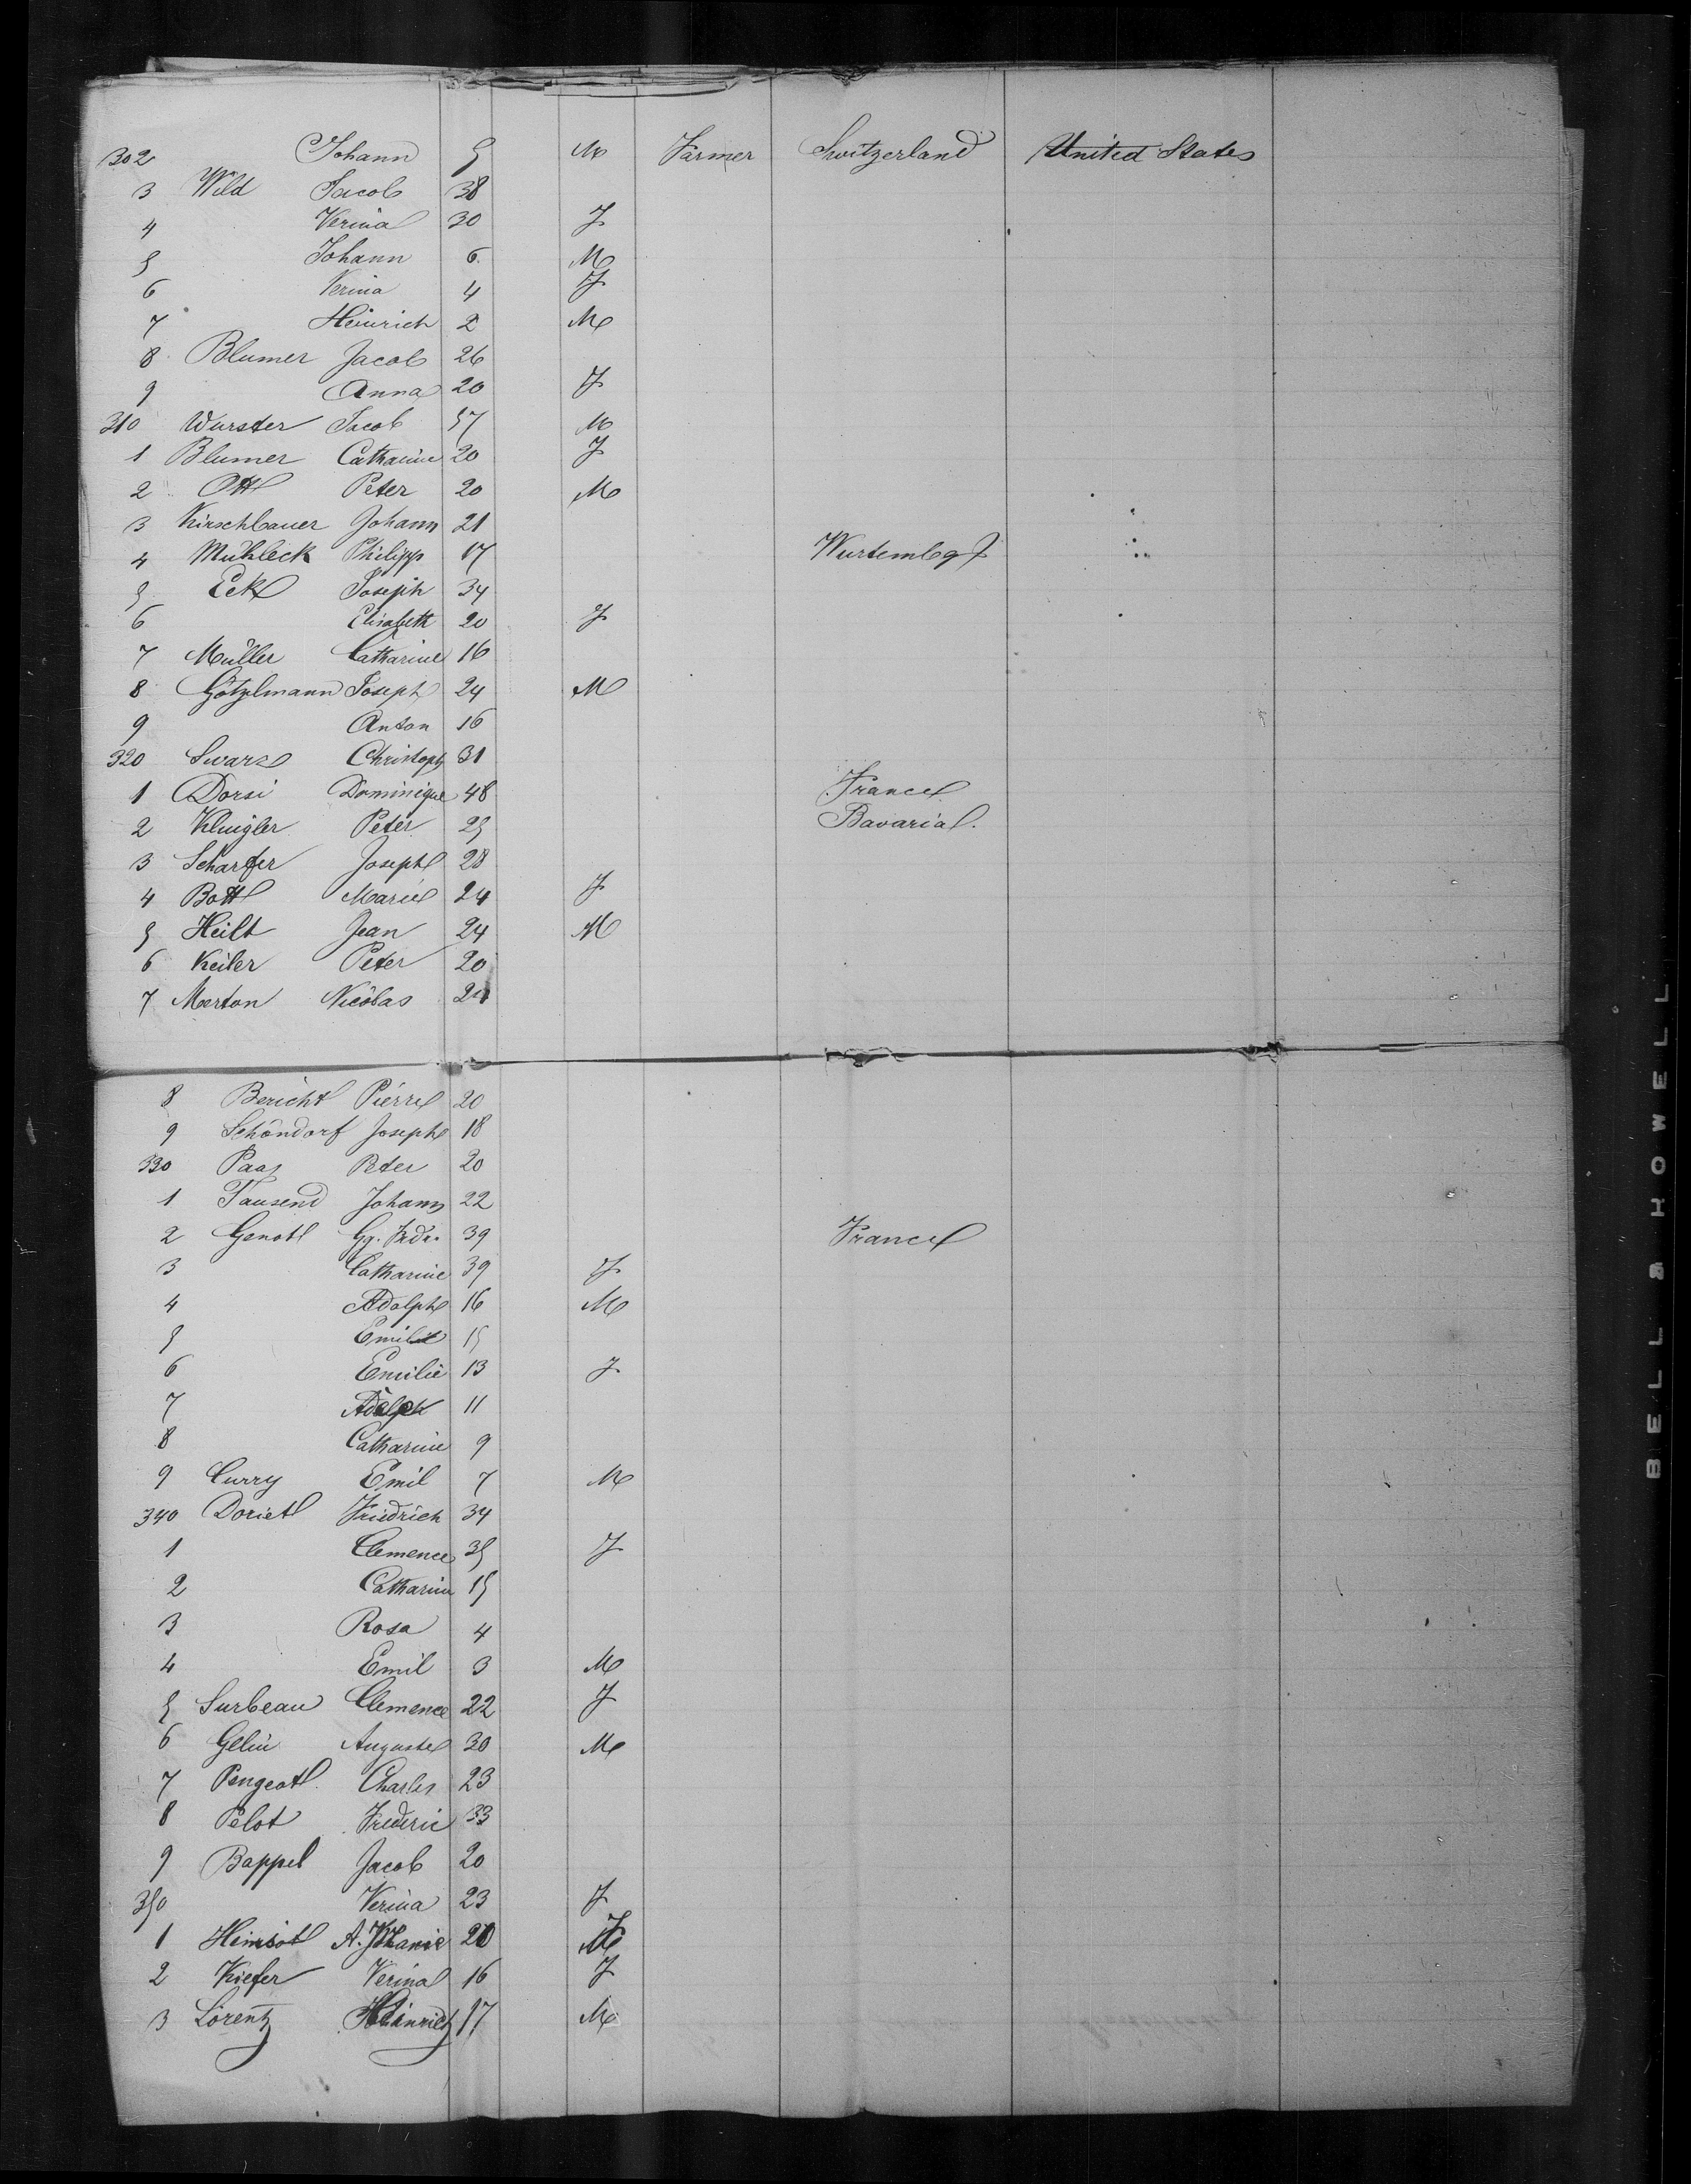 302 Johann 5 M Farmer Switzerland United States
3 Wild Jacob 38
4 Verina 30 F
5 Johann 6 M
6 Verina 4 F
7 Heinrich 2 M
8 Blumer Jacob 26
9 Anna 20 F
310 Wurster Jacob 57 M
1 Blumer Catharine 20 F
2 Ott Peter 20 M
3 Kirschbauer Johann 21
4 Mühleck Philipp 17 Wurtembg
5 Eck Joseph 34
6 Elisabeth 20 F
7 Müller Catharine 16
8 Götzelmann Joseph 24 M
9 Anton 16
320 Swarz Christoph 31
1 Dorsi Dominique 48 France
2 Klingler Peter 25 Bavaria.
3 Scharfer Joseph 28
4 Bott Marie 24 F
5 Heilt Jean 24 M
6 Keiler Peter 20
7 Merton Nicolas 24
8 Bericht Pierre 20
9 Schöndorf Joseph 18
330 Paas Peter 20
1 Tausend Johann 22
2 Genot Gg. Frdr. 39 France
3 Catharine 39 F
4 Adolphe 16 M
5 Emil 15
6 Emilie 13 F
7 11
8 Catharine 9
9 Curry Emil 7 M
340 Doriet Friedrich 34
1 Clemence 35 F
2 Catharine 15
3 Rosa 4
4 Emil 3 M
5 Surbeau Clemence 22 F
6 Gelin Auguste 30 M
7 Pengeot Charles 23
8 Pelot Frederic 33
9 Bappel Jacob 20
350 Verina 23 F
1 A. 20 F
2 Kiefer Verina 16 F
3 Lorentz Heinrich 17 M
BELL & HOWELL